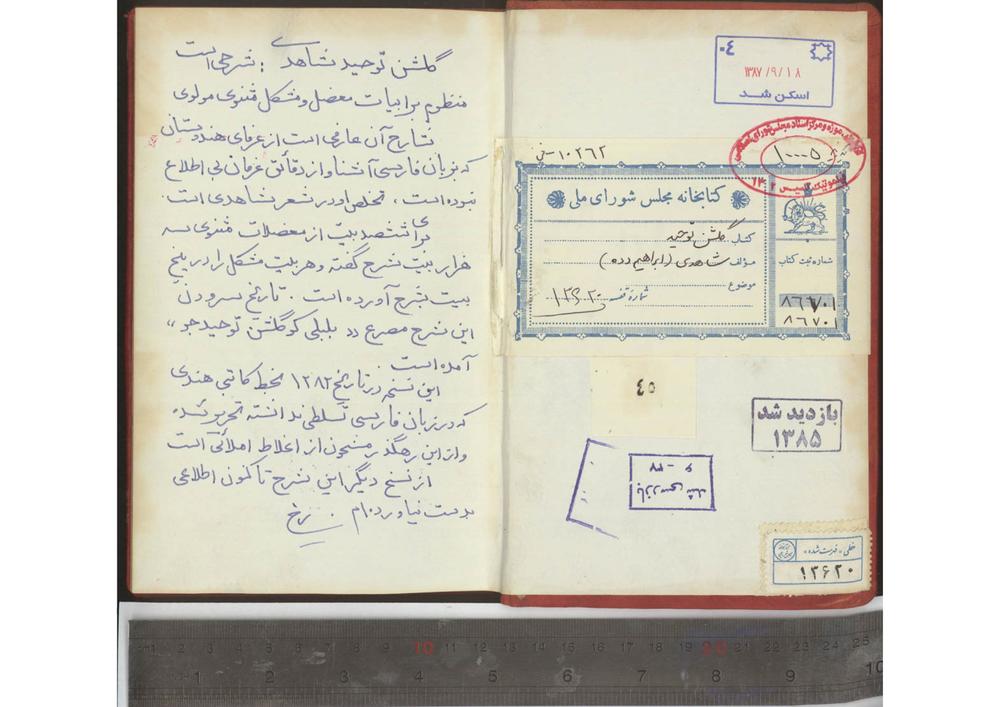 گلشن توحید شاهدی : شرحی است
منظوم بر ابیات معضل و مشکل مثنوی مولوی
شارح آن عارفی است از عرفای هندوستان
که بزبان فارسی آشنا و از دقائق عرفان بی اطلاع
نبوده است ، تخلص او در شعر شاهدی است .
وی برای ششصد بیت از معضلات مثنوی سه
هزار بیت شرح گفته و هر بیت مشکل را در پنج
بیت شرح آورده است . تاریخ سرودن
این شرح مصرع «بلبلی کو گلشن توحید جو»
آمده است .
این نسخه در تاریخ ۱۲۸۲ بخط کاتبی هندی
که در زبان فارسی تسلطی نداشته تحریر شده
و از این رهگذر مشحون از اغلاط املائی است
از نسخ دیگر این شرح تاکنون اطلاعی
بدست نیاورده‌ام .
۰۴
۱۳۸۷/۹/۱۸
اسکن شد
کتابخانه، موزه و مرکز اسناد مجلس شورای اسلامی
۱۰۰۰۵
۱۰۲۶۲
کتابخانه مجلس شورای ملی
کتاب گلشن توحید
مؤلف شاهدی (ابراهیم دده)
موضوع
شماره قفسه ۱۳۶۲۰
شماره ثبت کتاب
۸۶۷۰۱
۸۶۷۰۱
۴۵
بازدید شد
۱۳۸۵
بازرسی شد
۶ - ۳۷
خطی « فهرست شده »
۱۳۶۲۰
1 2 3 4 5 6 7 8 9 10 11 12 13 14 15 16 17 18 19 20 21 22 23 24 25
1 2 3 4 5 6 7 8 9 10